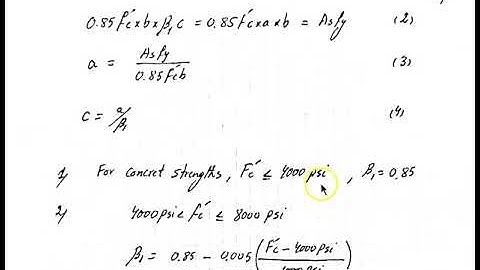 0.85 f'c x b x β₁ c = 0.85 f'c x a x b = Asfy (2)
a = Asfy / 0.85 f'c b (3)
c = a/β₁ (4)
1) For concret strengths, Fc' ≤ 4000 psi, β₁ = 0.85
2) 4000 psi < fc' ≤ 8000 psi
β₁ = 0.85 - 0.005 (Fc' - 4000 psi